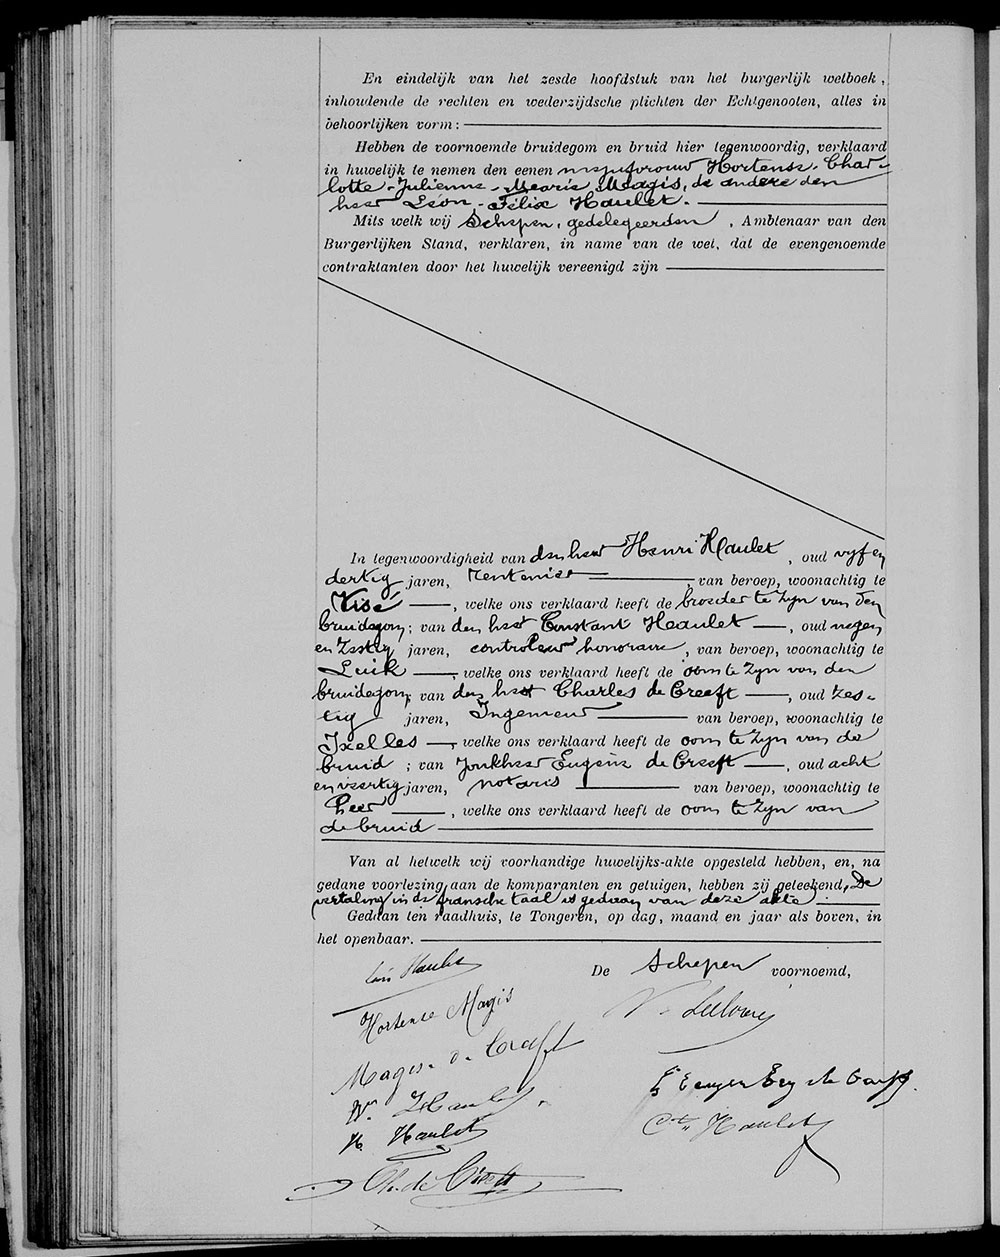 En eindelijk van het zesde hoofdstuk van het burgerlijk wetboek,
inhoudende de rechten en wederzijdsche plichten der Echtgenooten, alles in
behoorlijken vorm:
Hebben de voornoemde bruidegom en bruid hier tegenwoordig, verklaard
in huwelijk te nemen den eenen mejufvrouw Hortense-Char-
lotte-Julienne-Marie Magis, de andere den
heer Léon-Félix Haulet.
Mits welk wij Schepen, gedelegeerden, Ambtenaar van den
Burgerlijken Stand, verklaren, in name van de wet, dat de evengenoemde
contraktanten door het huwelijk vereenigd zijn
In tegenwoordigheid van den heer Henri Haulet, oud vyf en
dertig jaren, rentenier, van beroep, woonachtig te
Visé, welke ons verklaard heeft de broeder te zyn van den
bruidegom; van den heer Constant Haulet, oud negen
en zestig jaren, controleur honoraire, van beroep, woonachtig te
Luik, welke ons verklaard heeft de oom te zyn van den
bruidegom; van den heer Charles de Creeft, oud zes-
tig jaren, Ingenieur van beroep, woonachtig te
Ixelles, welke ons verklaard heeft de oom te zyn van de
bruid; van Jonkheer Eugène de Creeft, oud acht
en veertig jaren, notaris van beroep, woonachtig te
Peer, welke ons verklaard heeft de oom te zyn van
de bruid
Van al hetwelk wij voorhandige huwelijks-akte opgesteld hebben, en, na
gedane voorlezing aan de komparanten en getuigen, hebben zij geteekend, De
vertaling in de fransche taal is gedaan van deze akte
Gedaan ten raadhuis, te Tongeren, op dag, maand en jaar als boven, in
het openbaar.
De Schepen voornoemd,
Haulet
Hortense Magis
Magis-de Creeft
Haulet
H. Haulet
Ch. de Creeft
Cte Haulet